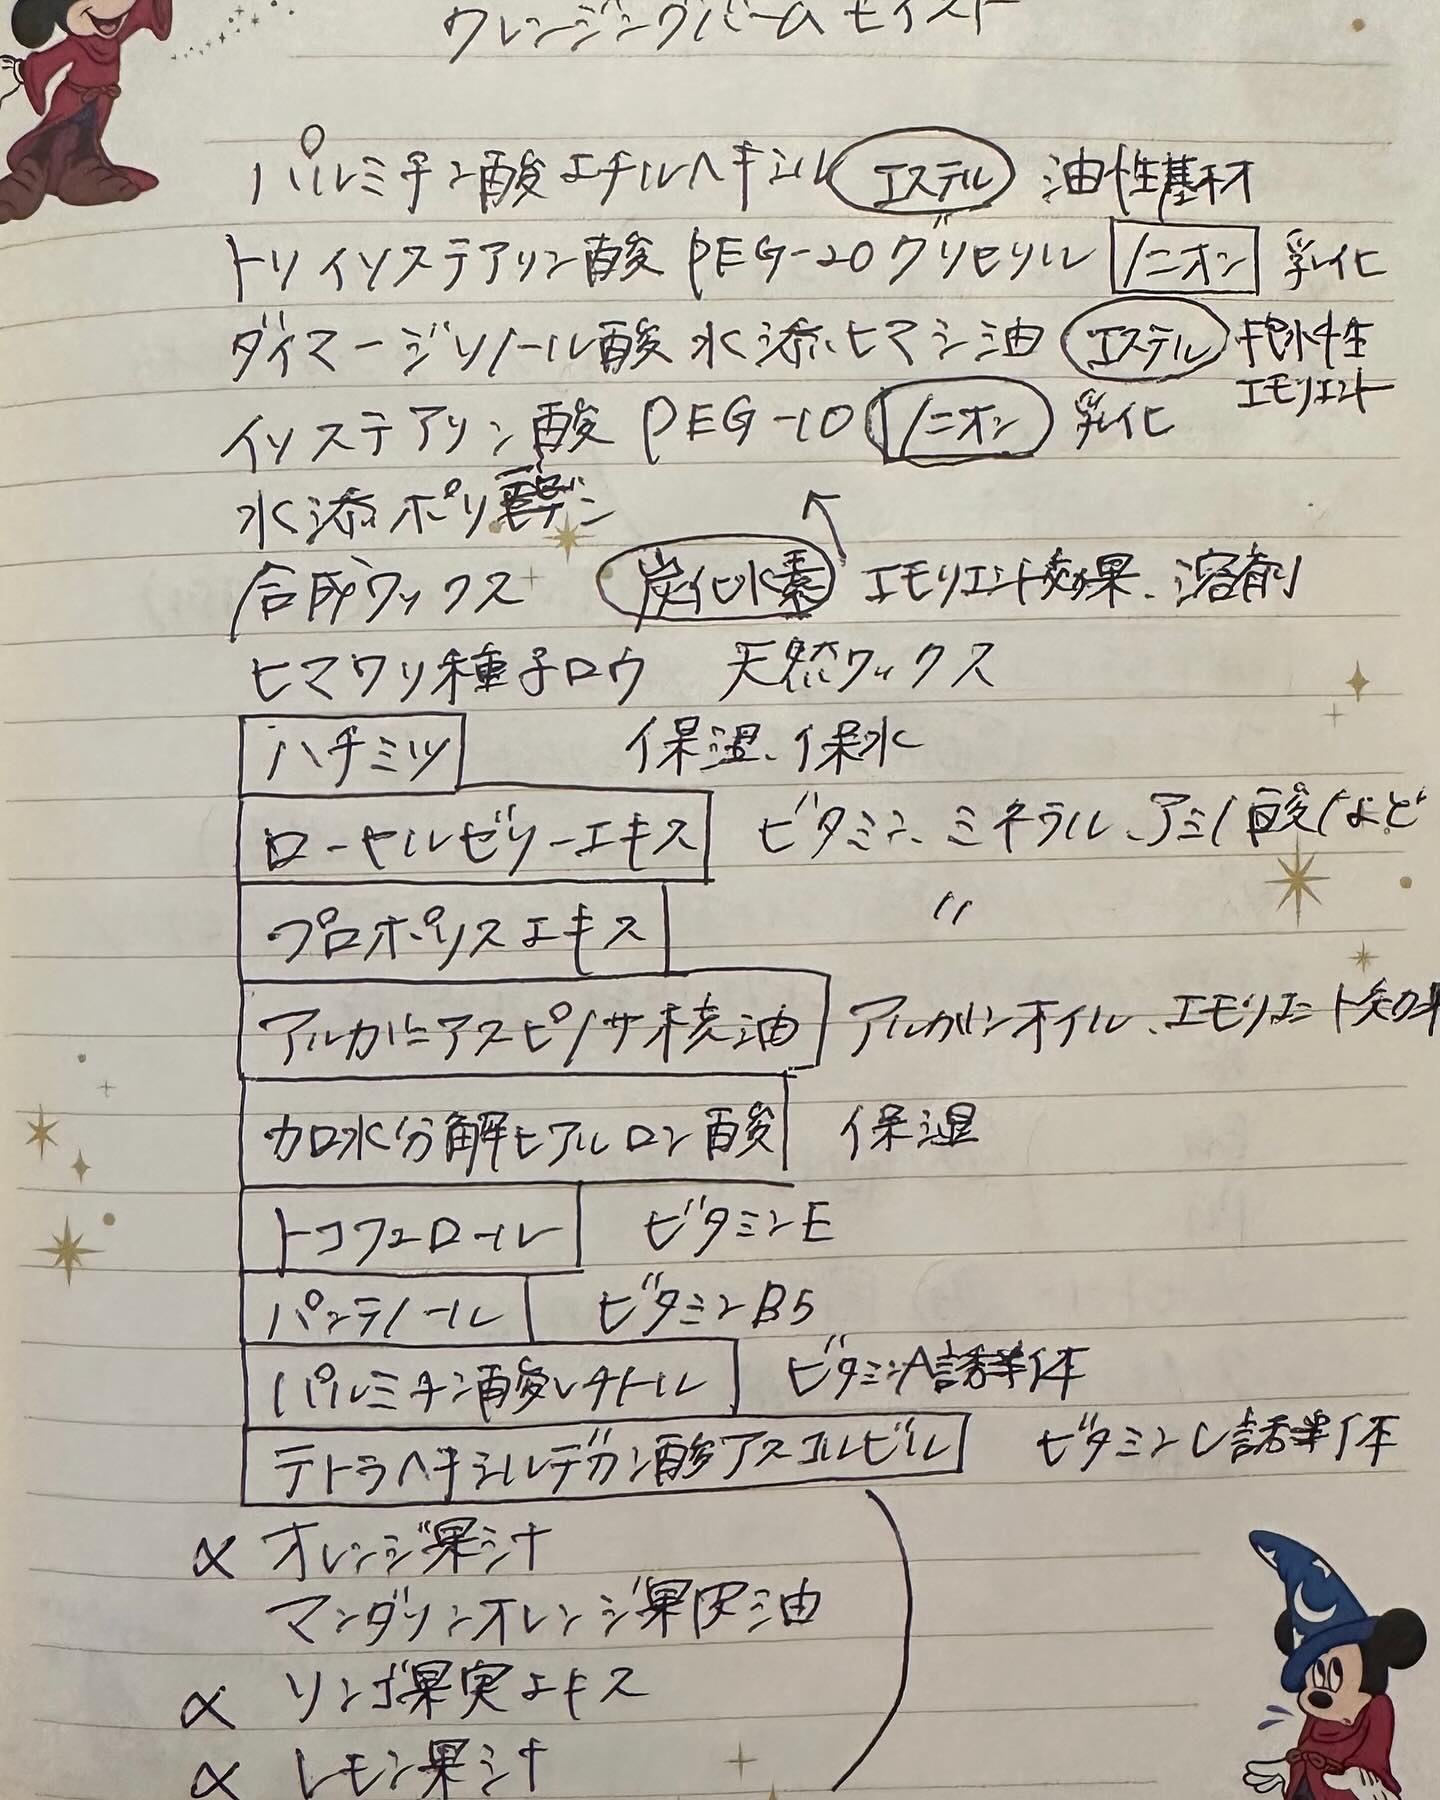 クレンジングバーム モイスト
パルミチン酸エチルヘキシル エステル 油性基材
トリイソステアリン酸 PEG-20グリセリル ノニオン 乳化
ダイマージリノール酸水添ヒマシ油 エステル 抱水性
エモリエント
イソステアリン酸 PEG-10 ノニオン 乳化
水添ポリデン
合成ワックス 炭化水素 エモリエント効果、溶剤
ヒマワリ種子ロウ 天然ワックス
ハチミツ 保湿、保水
ローヤルゼリーエキス ビタミン、ミネラル、アミノ酸など
プロポリスエキス 〃
アルガニアスピノサ核油 アルガンオイル、エモリエント効果
加水分解ヒアルロン酸 保湿
トコフェロール ビタミンE
パンテノール ビタミンB5
パルミチン酸レチノール ビタミンA誘導体
テトラヘキシルデカン酸アスコルビル ビタミンC誘導体
α オレンジ果汁
マンダリンオレンジ果皮油
α リンゴ果実エキス
α レモン果汁